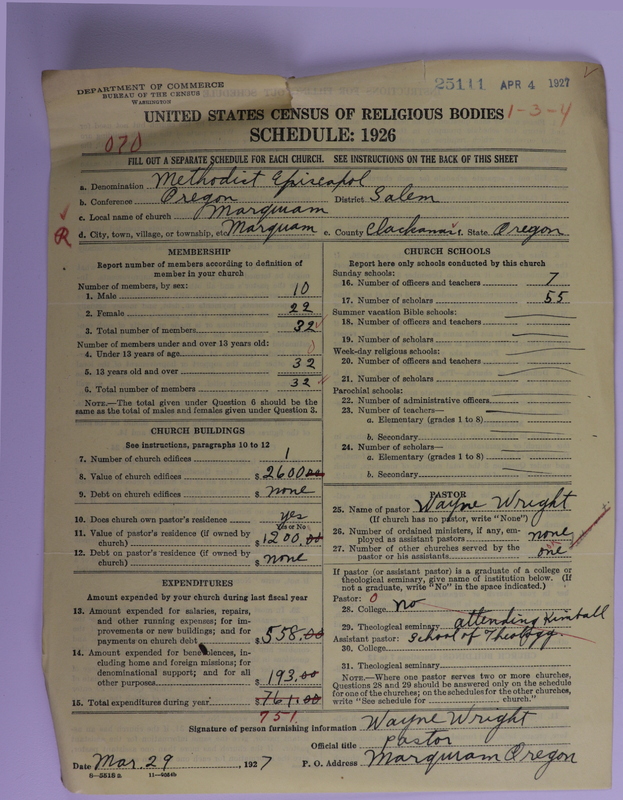 DEPARTMENT OF COMMERCE
BUREAU OF THE CENSUS
WASHINGTON
25111 APR 4 1927
UNITED STATES CENSUS OF RELIGIOUS BODIES 1-3-4
SCHEDULE: 1926
070
FILL OUT A SEPARATE SCHEDULE FOR EACH CHURCH. SEE INSTRUCTIONS ON THE BACK OF THIS SHEET
a. Denomination Methodist Episcapol
b. Conference Oregon District Salem
c. Local name of church Marquam
R d. City, town, village, or township, etc. Marquam e. County Clackamas f. State Oregon
MEMBERSHIP
Report number of members according to definition of
member in your church
Number of members, by sex:
1. Male 10
2. Female 22
3. Total number of members 32
Number of members under and over 13 years old:
4. Under 13 years of age 0
5. 13 years old and over 32
6. Total number of members 32
NOTE.—The total given under Question 6 should be the
same as the total of males and females given under Question 3.
CHURCH BUILDINGS
See instructions, paragraphs 10 to 12
7. Number of church edifices 1
8. Value of church edifices $ 2600.00
9. Debt on church edifices $ none
10. Does church own pastor's residence yes
Yes or No
11. Value of pastor's residence (if owned by
church) $ 1200.00
12. Debt on pastor's residence (if owned by
church) $ none
EXPENDITURES
Amount expended by your church during last fiscal year
13. Amount expended for salaries, repairs,
and other running expenses; for im-
provements or new buildings; and for
payments on church debt $ 558.00
14. Amount expended for benevolences, in-
cluding home and foreign missions; for
denominational support; and for all
other purposes $ 193.00
15. Total expenditures during year $ 761.00
751
CHURCH SCHOOLS
Report here only schools conducted by this church
Sunday schools:
16. Number of officers and teachers 7
17. Number of scholars 55
Summer vacation Bible schools:
18. Number of officers and teachers
19. Number of scholars
Week-day religious schools:
20. Number of officers and teachers
21. Number of scholars
Parochial schools:
22. Number of administrative officers
23. Number of teachers—
a. Elementary (grades 1 to 8)
b. Secondary
24. Number of scholars—
a. Elementary (grades 1 to 8)
b. Secondary
PASTOR
25. Name of pastor Wayne Wright
(If church has no pastor, write "None")
26. Number of ordained ministers, if any, em-
ployed as assistant pastors none
27. Number of other churches served by the
pastor or his assistants one
If pastor (or assistant pastor) is a graduate of a college or
theological seminary, give name of institution below. (If
not a graduate, write "No" in the space indicated.)
Pastor: 0
28. College no
29. Theological seminary attending Kimball
Assistant pastor: School of Theology
30. College
31. Theological seminary
NOTE.—Where one pastor serves two or more churches,
Questions 28 and 29 should be answered only on the schedule
for one of the churches; on the schedules for the other churches,
write "See schedule for church."
Signature of person furnishing information Wayne Wright
Official title Pastor
Date Mar. 29, 1927 P. O. Address Marquam Oregon